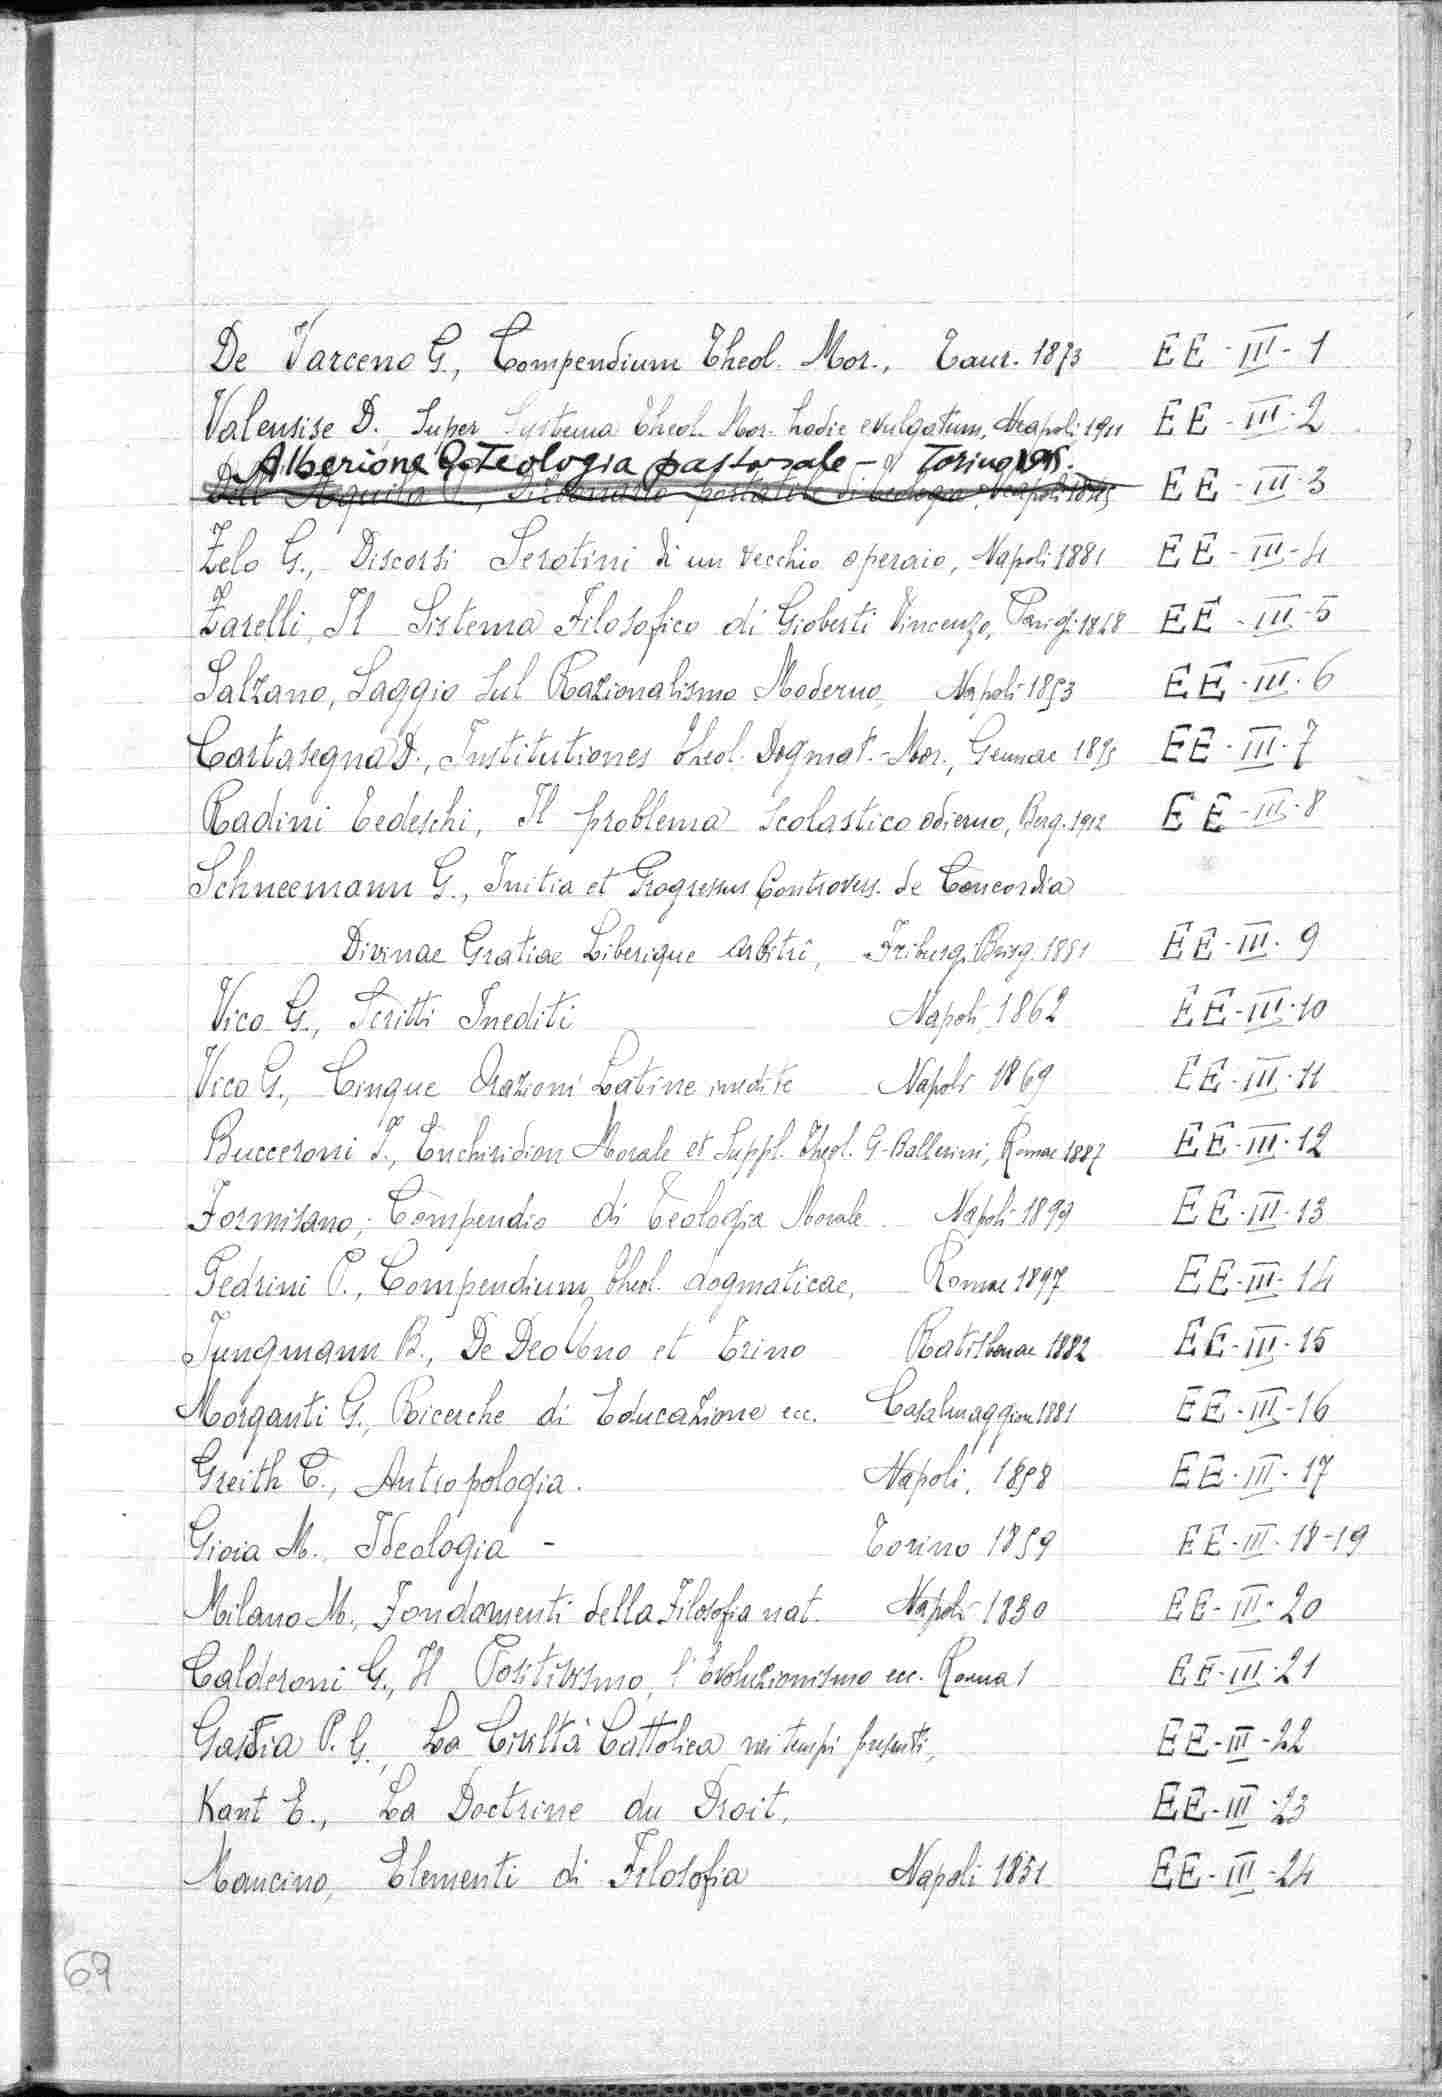 De Varceno G., Compendium Theol. Mor., Taur. 1873 EE-III-1
Valensise D., Super Systema Theol. Mor. hodie evulgatum, Neapoli 1911 EE-III-2
Alberione G. Teologia pastorale - Torino
Dell'Aquila Dizionario portatile di teologia, Neapoli EE-III-3
Zelo G., Discorsi Serotini di un vecchio operaio, Napoli 1881 EE-III-4
Zarelli, Il Sistema Filosofico di Gioberti Vincenzo, Parigi 1848 EE-III-5
Salzano, Saggio sul Razionalismo Moderno, Napoli 1853 EE-III-6
Cartasegna D., Institutiones theol. Dogmat.-Mor., Genuae EE-III-7
Radini Tedeschi, Il problema scolastico odierno, Berg. 1912 EE-III-8
Schneemann G., Initia et Progressus Controvers. de Concordia
Divinae Gratiae Liberique Arbitri, Friburgi Brisg. 1881 EE-III-9
Vico G., Scritti Inediti Napoli, 1862 EE-III-10
Vico G., Cinque Orazioni Latine inedite Napoli 1869 EE-III-11
Bucceroni I., Enchiridion Morale et Suppl. Theol. G-Ballerini, Romae 1887 EE-III-12
Formisano, Compendio di Teologia Morale Napoli 1899 EE-III-13
Pedrini P., Compendium theol. dogmaticae, Romae 1897 EE-III-14
Jungmann B., De Deo Uno et Trino Ratisbonae 1882 EE-III-15
Morganti G., Ricerche di Educazione ecc. Casalmaggiore 1881 EE-III-16
Greith C., Antropologia. Napoli, 1858 EE-III-17
Gioia M., Ideologia - Torino 1859 EE-III-18-19
Milano M., Fondamenti della Filosofia nat. Napoli 1830 EE-III-20
Calderoni G., Il Positivismo, l'evoluzionismo ecc. Roma 1 EE-III-21
Gastia P. G., La Civiltà Cattolica nei tempi presenti, EE-III-22
Kant E., La Doctrine du Droit, EE-III-23
Mancino, Elementi di Filosofia Napoli 1851 EE-III-24
69